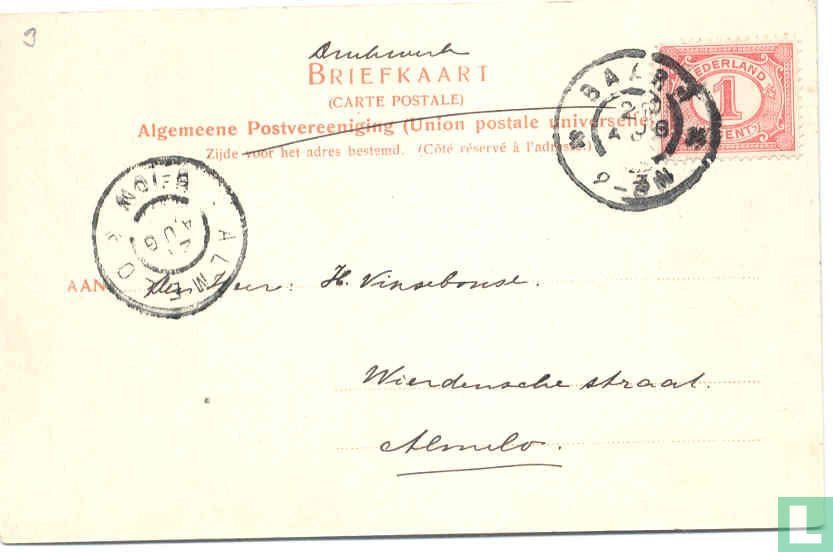 3
Drukwerk
BRIEFKAART
(CARTE POSTALE)
Algemeene Postvereeniging (Union postale universelle)
Zijde voor het adres bestemd. (Côté réservé à l'adresse.)
NEDERLAND
1
CENT
BAARN
AUG
ALMELO
AUG
AAN Den Heer: H. Vinsebouse.
Wierdensche straat.
Almelo.
L